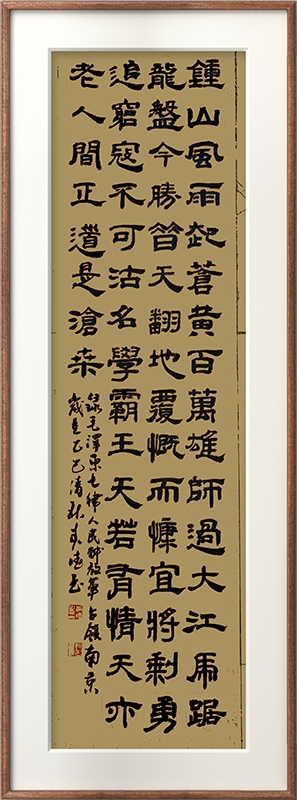 鍾山風雨起蒼黃百萬雄師過大江虎踞
龍盤今勝昔天翻地覆慨而慷宜將剩勇
追窮寇不可沽名學霸王天若有情天亦
老人間正道是滄桑
錄毛澤東七律人民解放軍占領南京
歲在乙巳清秋